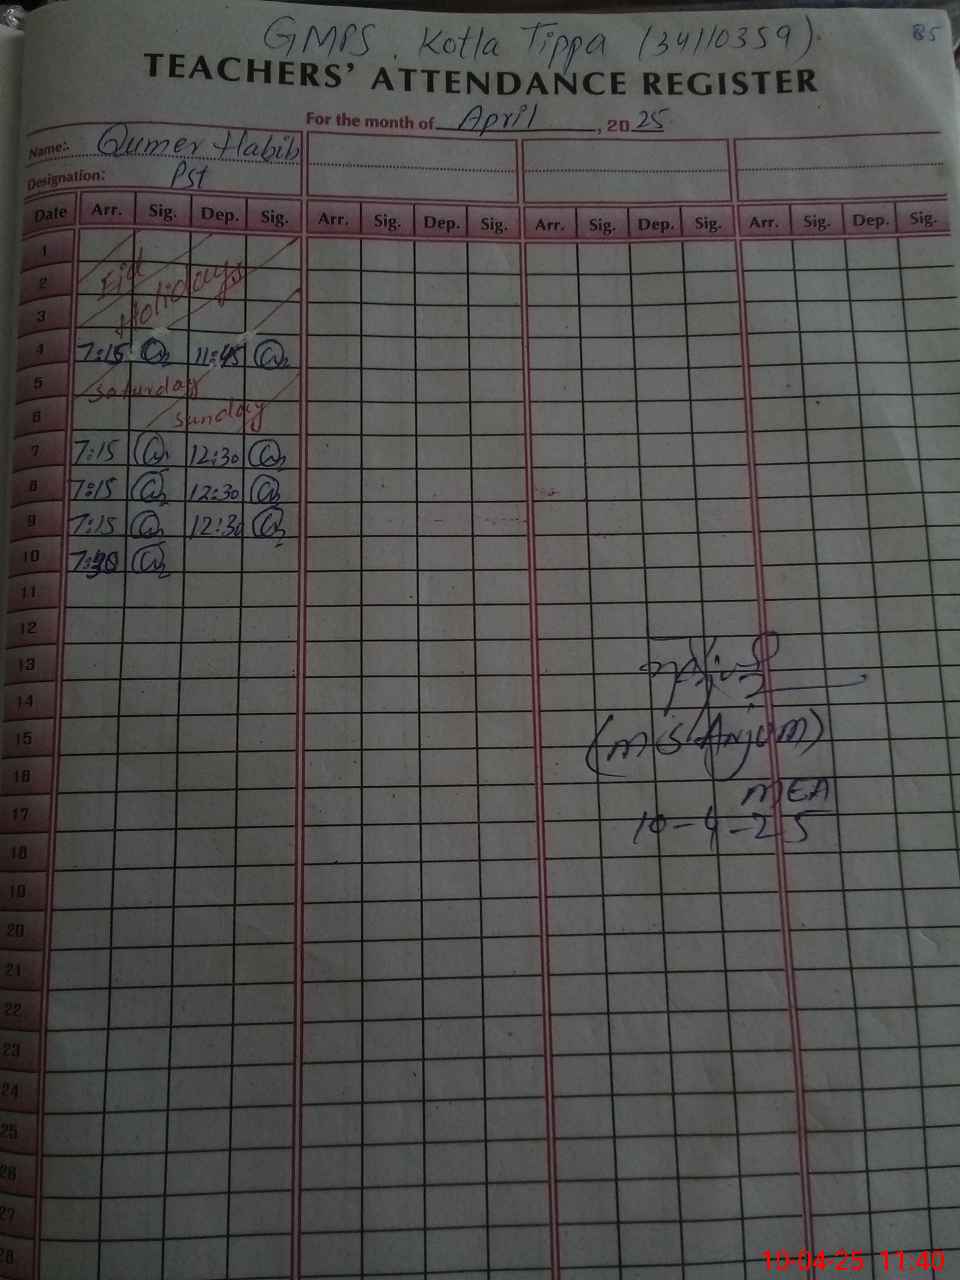 85
GMPS. Kotla Tippa (34110359).
TEACHERS' ATTENDANCE REGISTER
For the month of April, 2025
Name:. Qumer Habib
Designation: Pst
Date Arr. Sig. Dep. Sig. Arr. Sig. Dep. Sig. Arr. Sig. Dep. Sig. Arr. Sig. Dep. Sig.
1
2 Eid
3 Holidays
4 7:15 11:45
5 Saturday
6 Sunday
7 7:15 12:30
8 7:15 12:30
9 7:15 12:30
10
11
12
13
14
15 (M S Anjum)
16 MEA
17 10-4-25
18
19
20
21
22
23
24
25
26
27
28
10-04-25 11:40